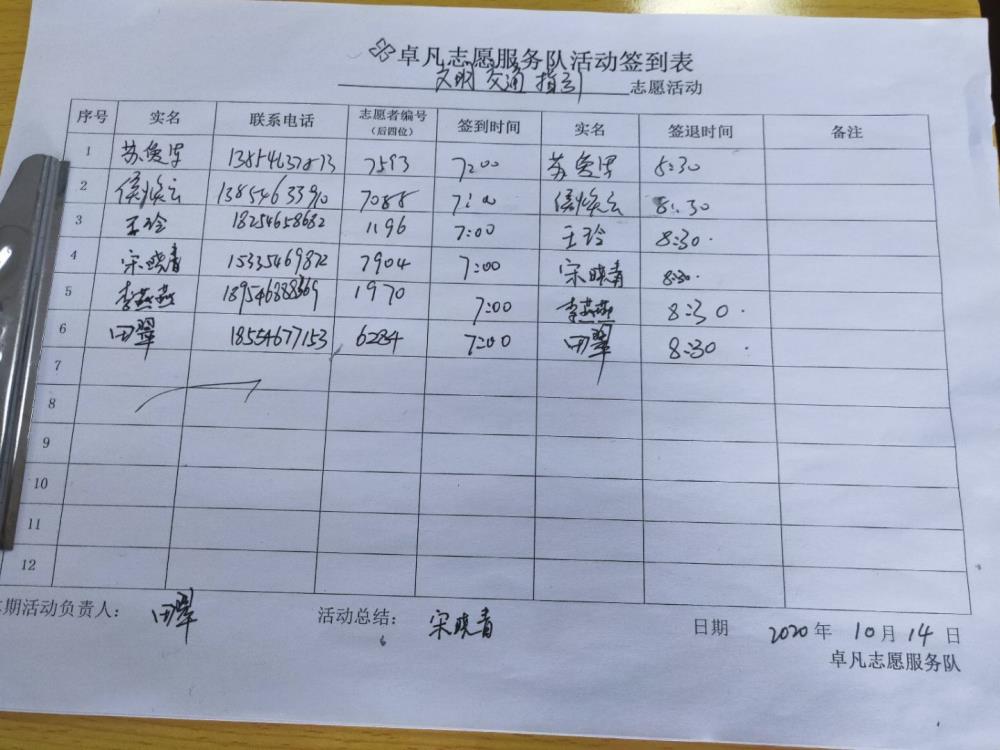 卓凡志愿服务队活动签到表
文明交通指引 志愿活动
序号 实名 联系电话 志愿者编号(后四位) 签到时间 实名 签退时间 备注
1 苏 13854637813 7593 7:00 苏 8:30
2 焕云 13854633910 7088 7:00 焕云 8:30
3 王玲 18254658682 1196 7:00 王玲 8:30
4 宋晓青 15335469872 7904 7:00 宋晓青 8:30
5 李燕燕 1970 7:00 李燕燕 8:30
6 田翠 18554677153 6284 7:00 田翠 8:30
7
8
9
10
11
12
期活动负责人: 田翠 活动总结: 宋晓青 日期 2020年10月14日
卓凡志愿服务队